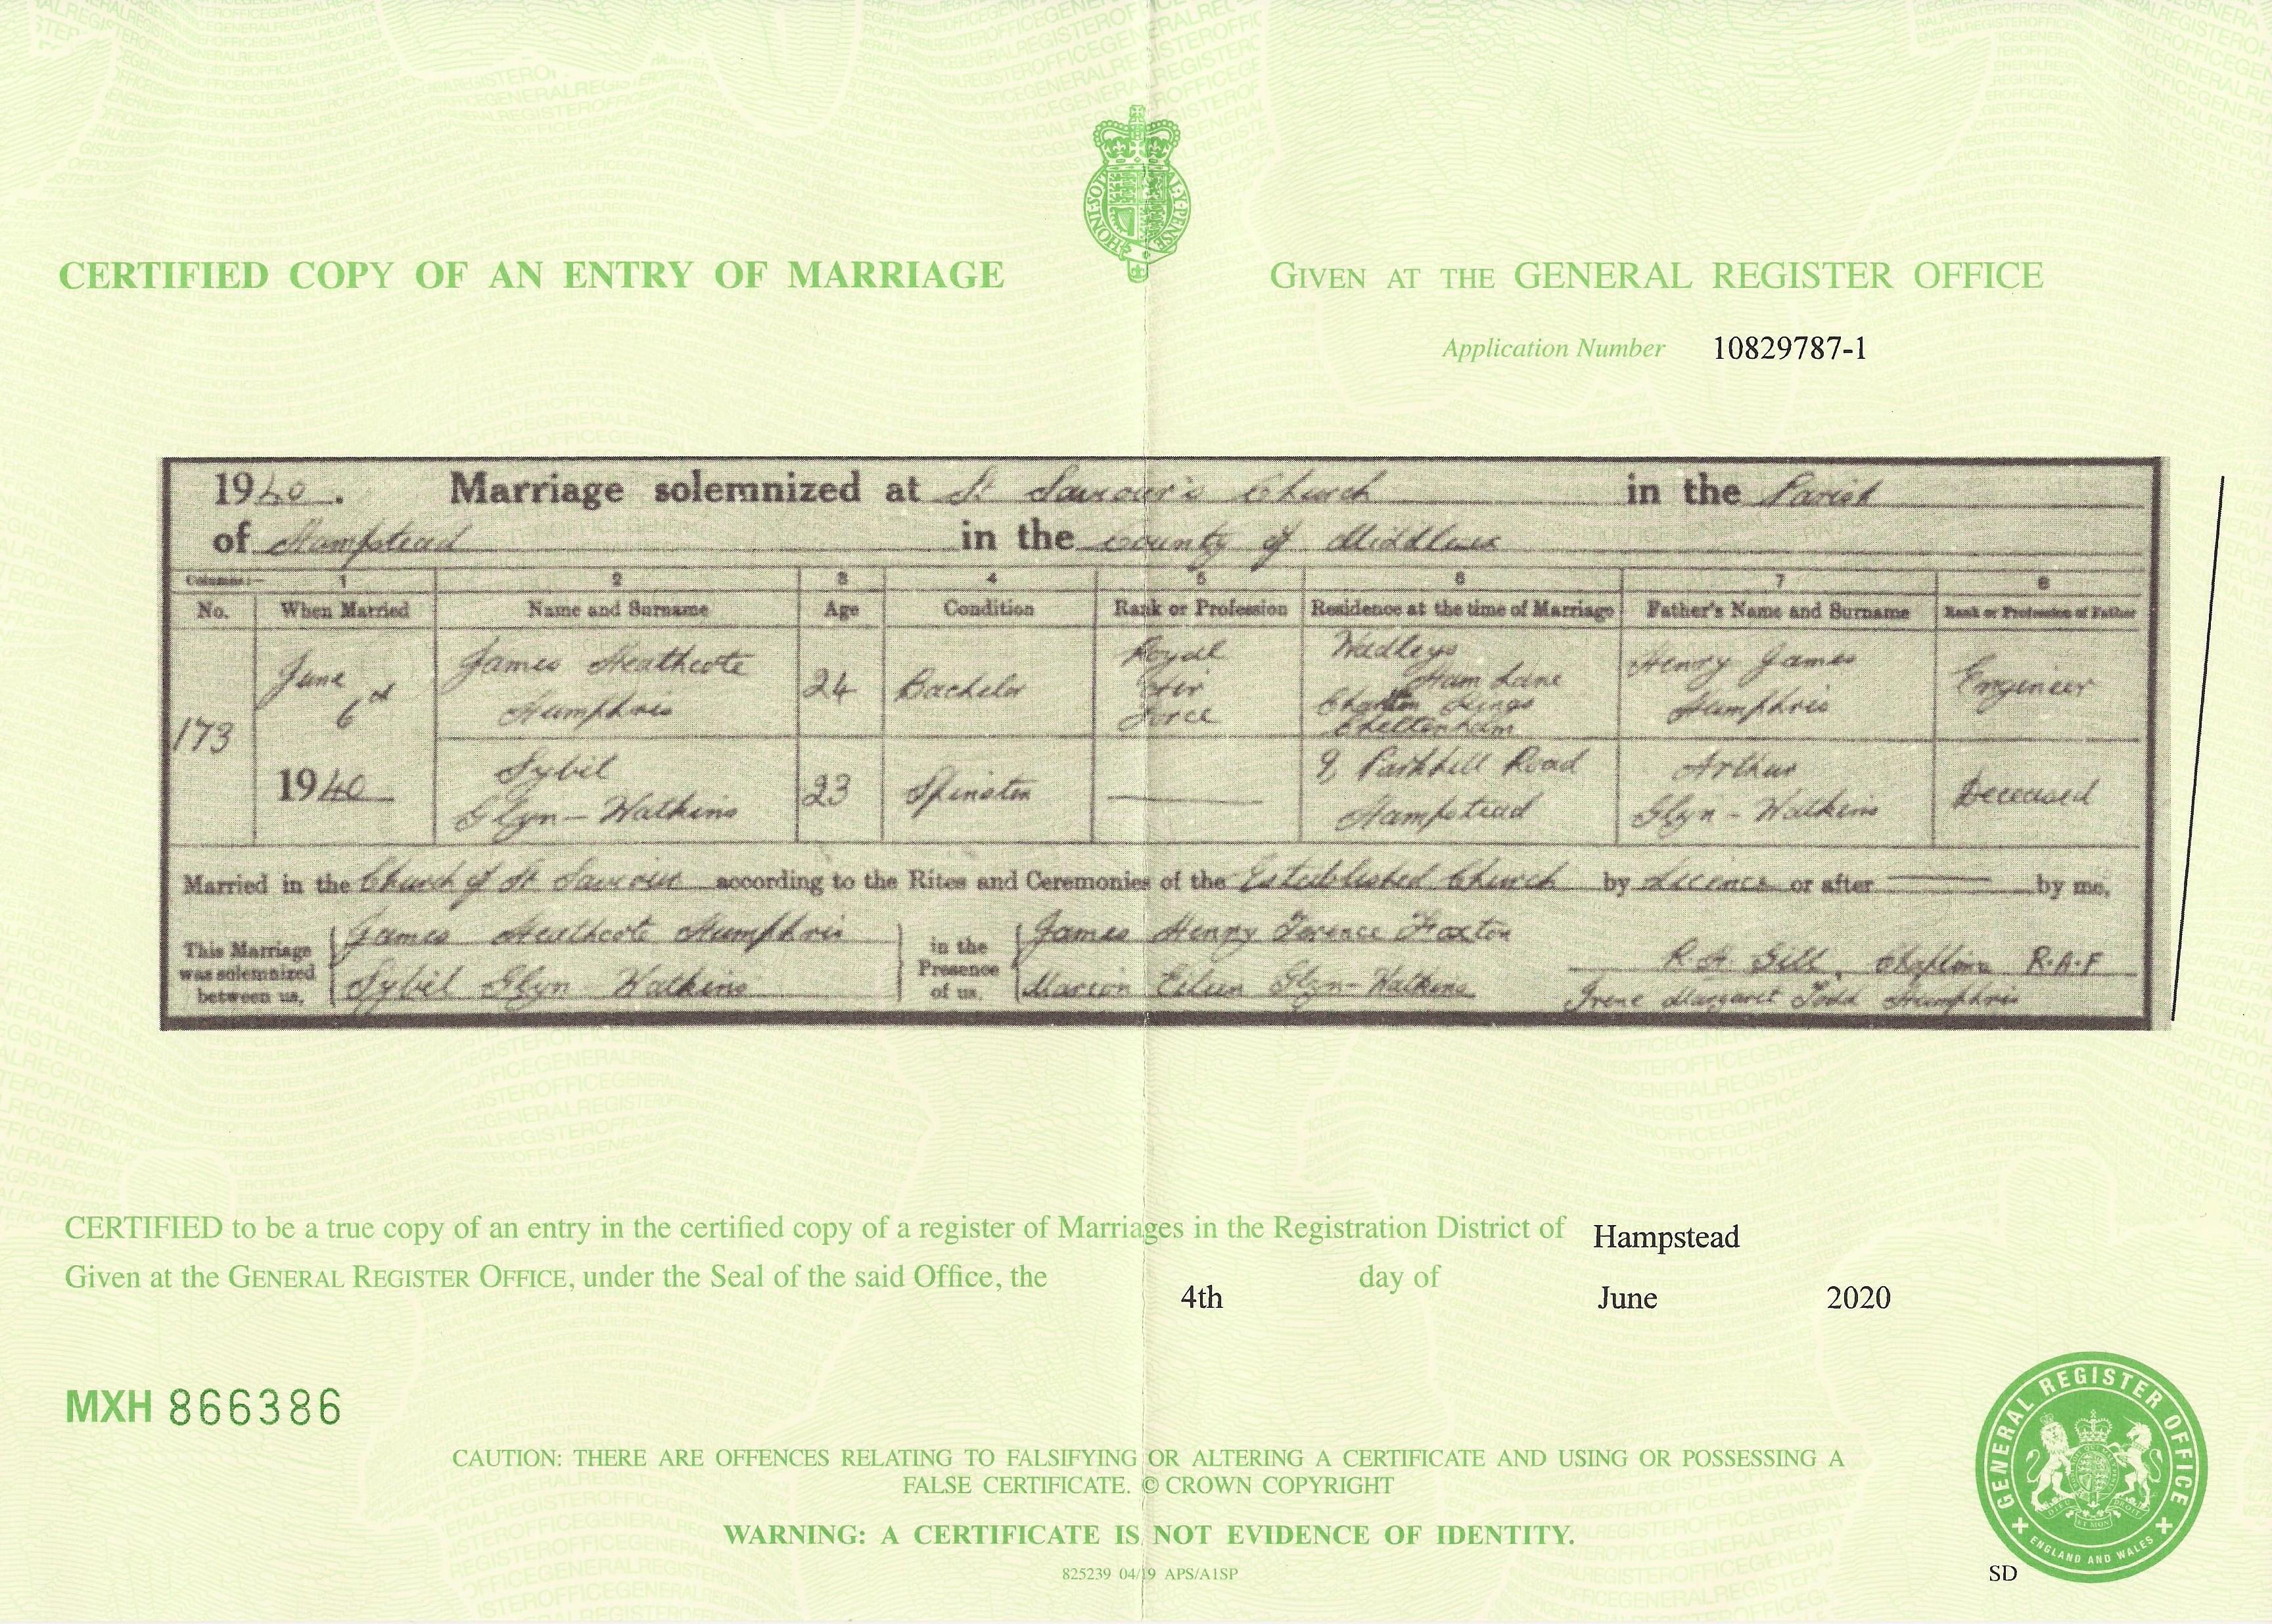 HONI SOIT QUI MAL Y PENSE
CERTIFIED COPY OF AN ENTRY OF MARRIAGE
GIVEN AT THE GENERAL REGISTER OFFICE
Application Number 10829787-1
1940. Marriage solemnized at St Saviour's Church in the Parish
of Hampstead in the County of Middlesex
Columns:— 1 2 3 4 5 6 7 8
No. When Married Name and Surname Age Condition Rank or Profession Residence at the time of Marriage Father's Name and Surname Rank or Profession of Father
173
June
6th
1940
James Heathcote
Humphris
24
Bachelor
Royal
Air
Force
Wadleys
Ham Lane
Charlton Kings
Cheltenham
Henry James
Humphris
Engineer
Sybil
Glyn-Watkins
23
Spinster
9, Parkhill Road
Hampstead
Arthur
Glyn-Watkins
Deceased
Married in the Church of St Saviour according to the Rites and Ceremonies of the Established Church by Licence or after by me,
This Marriage
was solemnized
between us,
James Heathcote Humphris
Sybil Glyn Watkins
in the
Presence
of us,
James Henry Terence Foxton
Marion Eileen Glyn-Watkins
R. H. Gill, Chaplain R.A.F
Irene Margaret Todd Humphris
CERTIFIED to be a true copy of an entry in the certified copy of a register of Marriages in the Registration District of Hampstead
Given at the GENERAL REGISTER OFFICE, under the Seal of the said Office, the 4th day of June 2020
MXH 866386
CAUTION: THERE ARE OFFENCES RELATING TO FALSIFYING OR ALTERING A CERTIFICATE AND USING OR POSSESSING A
FALSE CERTIFICATE. © CROWN COPYRIGHT
WARNING: A CERTIFICATE IS NOT EVIDENCE OF IDENTITY.
825239 04/19 APS/A1SP
GENERAL REGISTER OFFICE
ENGLAND AND WALES
SD